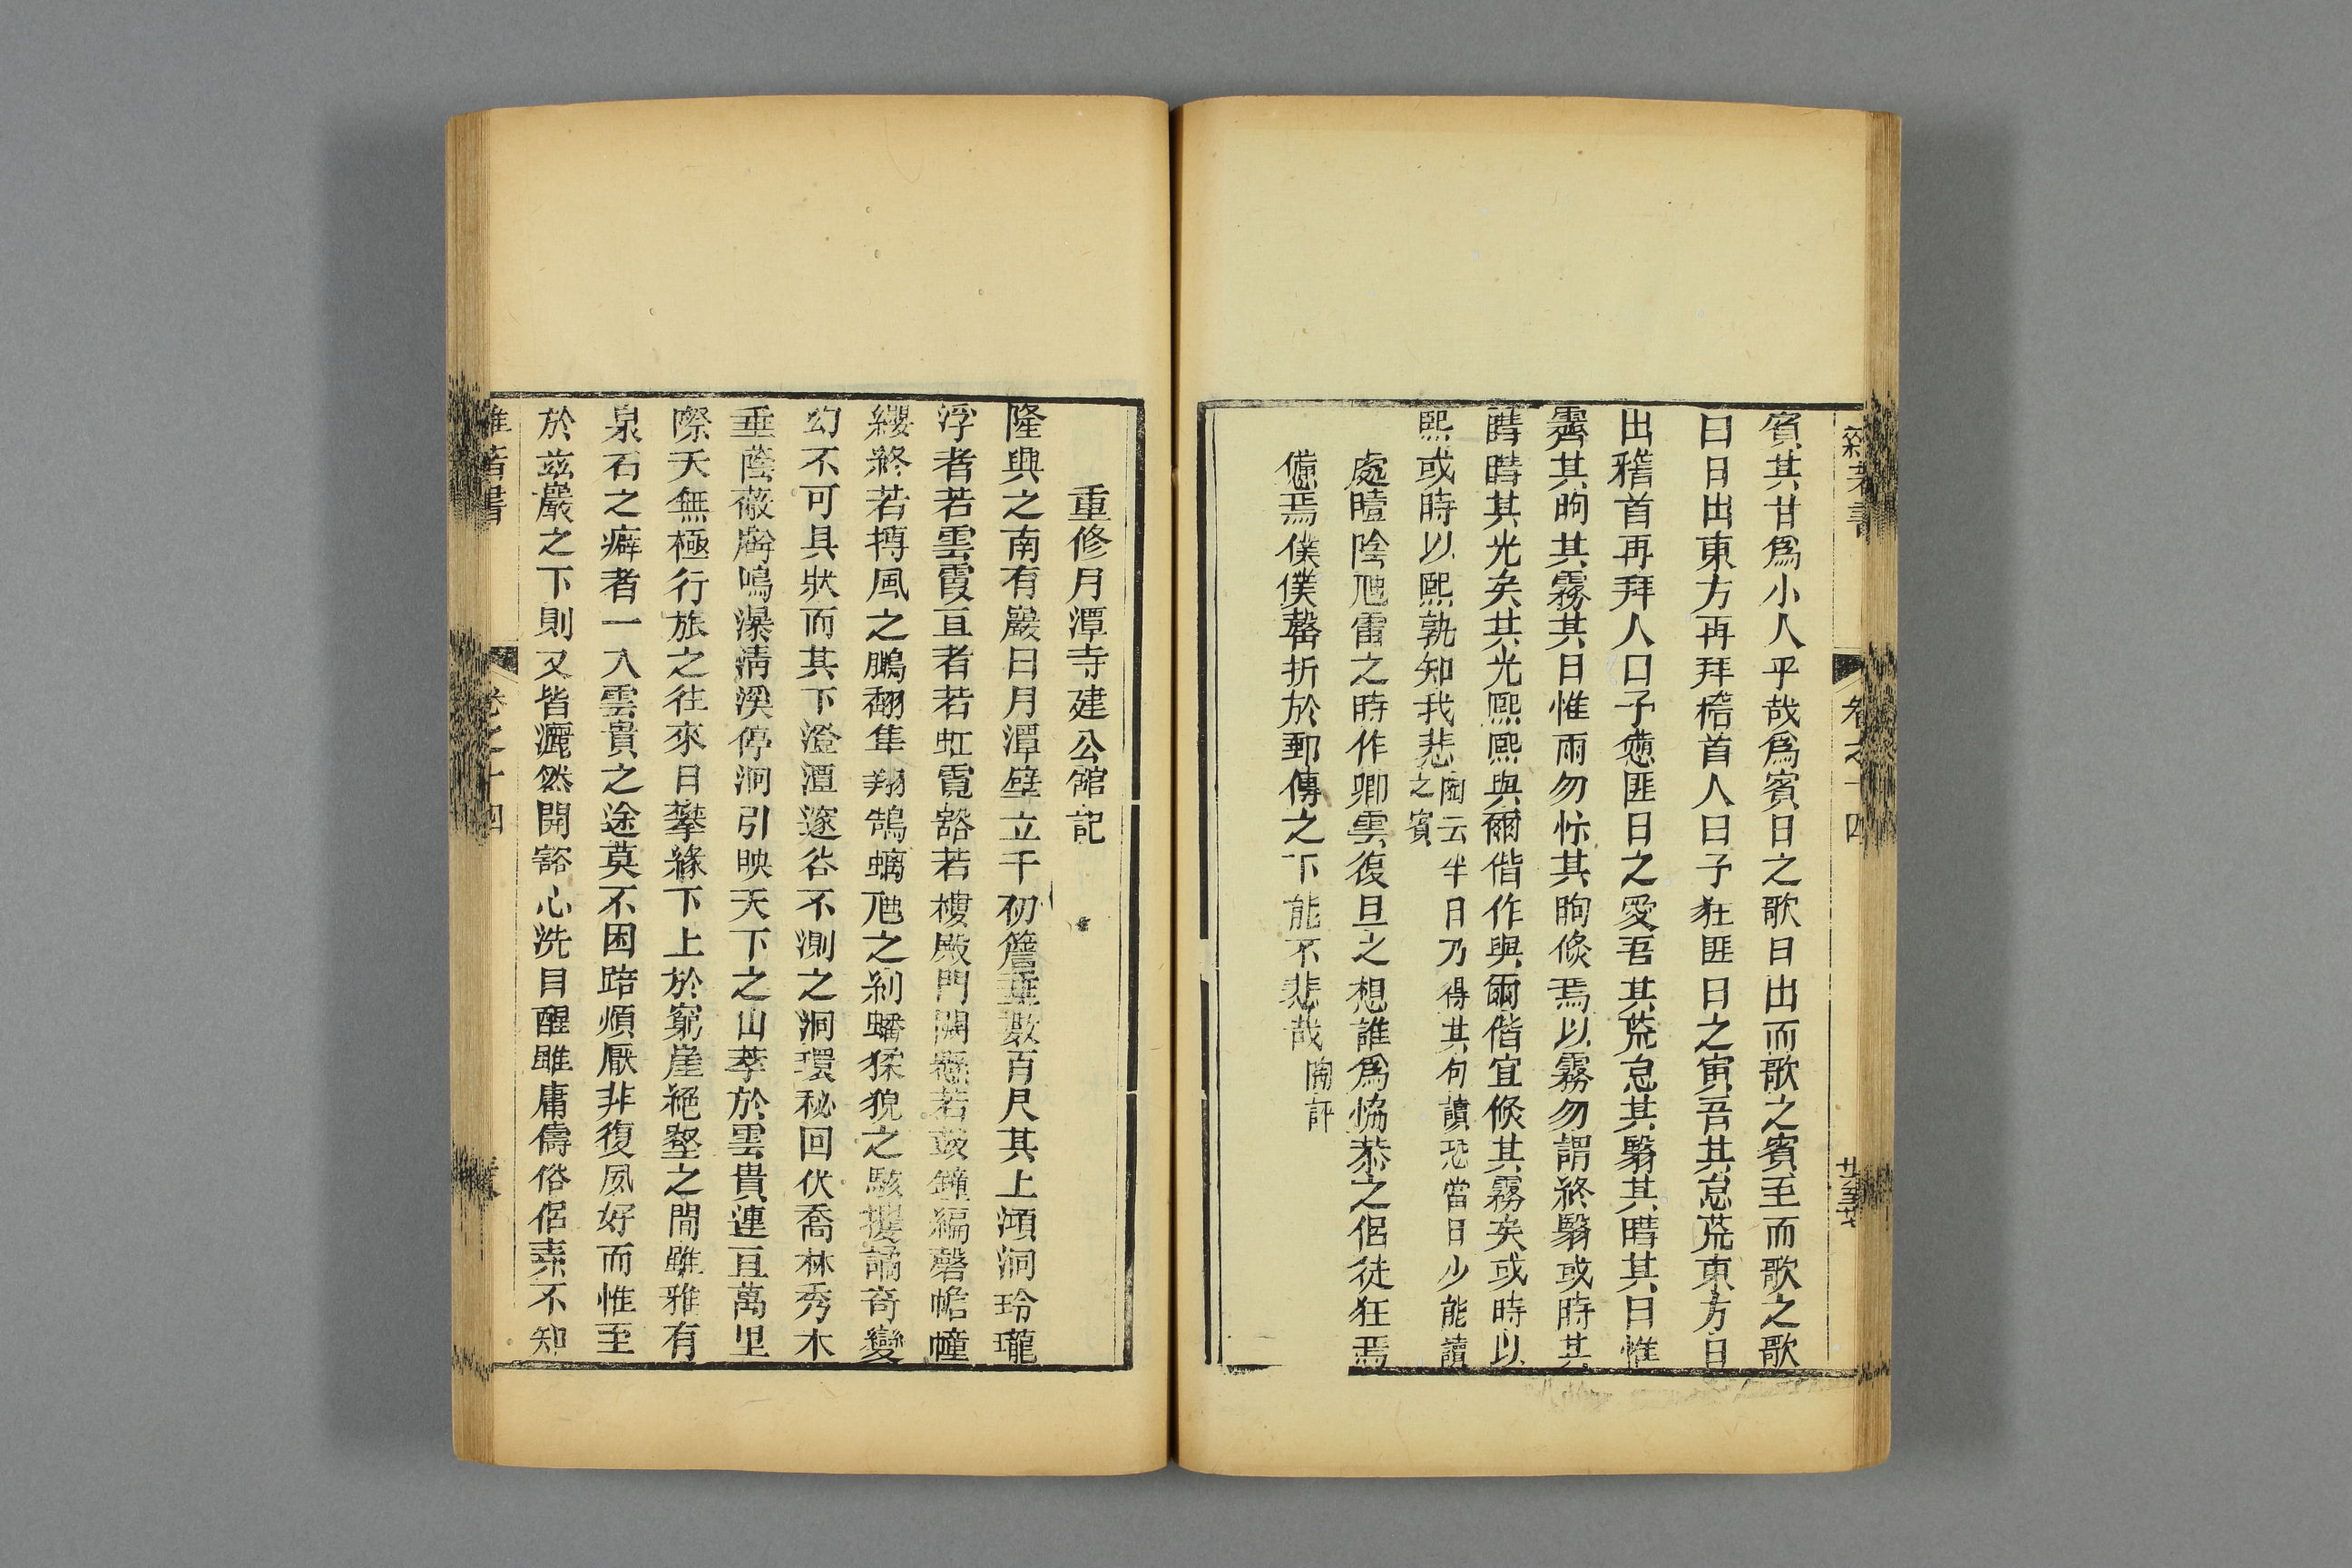 賓其甘爲小人乎哉爲賓日之歌日出而歌之賓至而歌之歌
曰日出東方再拜稽首人曰予狂匪日之寅吾其怠荒東方日
出稽首再拜人曰予憊匪日之愛吾其荒怠其翳其暳其日惟
霽其昫其霧其日惟雨勿忭其昫倐焉以霧勿謂終翳或時其
暳暳其光矣其光熙熙與爾偕作與爾偕宜倐其霧矣或時以
熙或時以熙孰知我悲
陶云半日乃得其句讀恐當日少能讀
之賓
處曀陰虺雷之時作卿雲復旦之想誰爲恊恭之侶徒狂焉
憊焉僕僕罄折於郵傳之下能不悲哉陶評
重修月潭寺建公舘記
隆興之南有巖曰月潭壁立千仞簷垂數百尺其上澒洞玲瓏
浮者若雲霞亘者若虹霓豁若樓殿門闕懸若鼓鐘編磬幨幢
纓終若摶風之鵬翻隼翔鵠螭虺之糾蟠猱猊之駭攫譎奇變
幻不可具狀而其下澄潭邃谷不測之洞環秘回伏喬林秀木
垂蔭蔽麟鳴瀑清溪停洞引映天下之山萃於雲貴連亘萬里
際天無極行旅之往來日攀緣下上於窮崖絕壑之間雖雅有
泉石之癖者一入雲貴之途莫不困踣煩厭非復夙好而惟至
於茲巖之下則又皆灑然開豁心洗目醒雖庸儔俗侶素不知
卷之十四